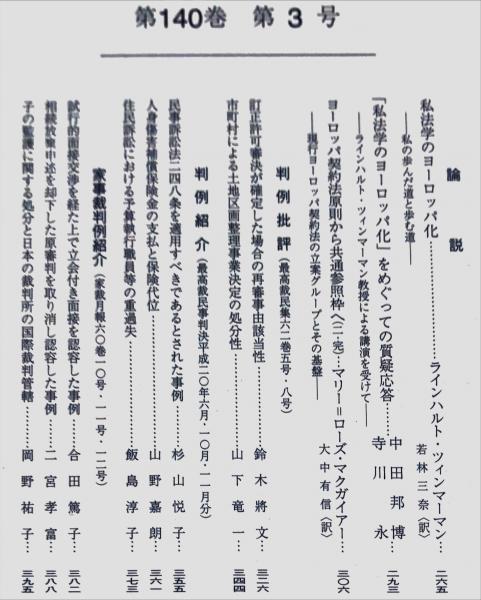 第140巻 第3号
論説
私法学のヨーロッパ化……………ラインハルト・ツィンマーマン…二六五
――私の歩んだ道と歩む道――
若林三奈〈訳〉
「私法学のヨーロッパ化」をめぐっての質疑応答……中田邦博…二九三
寺川永
――ラインハルト・ツィンマーマン教授による講演を受けて――
ヨーロッパ契約法原則から共通参照枠へ(二・完)…マリー＝ローズ・マクガイアー…三〇六
――現行ヨーロッパ契約法の立案グループとその基盤――
大中有信〈訳〉
判例批評(最高裁民集六二巻五号・八号)
訂正許可審決が確定した場合の再審事由該当性……………鈴木將文…三二六
市町村による土地区画整理事業決定の処分性……………山下竜一…三四四
判例紹介(最高裁民事判決平成二〇年六月・一〇月・一一月分)
民事訴訟法二四八条を適用すべきであるとされた事例……杉山悦子…三五五
人身傷害補償保険金の支払と保険代位……………山野嘉朗…三六一
住民訴訟における予算執行職員等の重過失……………飯島淳子…三七三
家事裁判例紹介(家裁月報六〇巻一〇号・一一号・一二号)
試行的面接交渉を経た上で立会付き面接を認容した事例……合田篤子…三八二
相続放棄申述を却下した原審判を取り消し認容した事例……二宮孝富…三八八
子の監護に関する処分と日本の裁判所の国際裁判管轄……岡野祐子…三九五